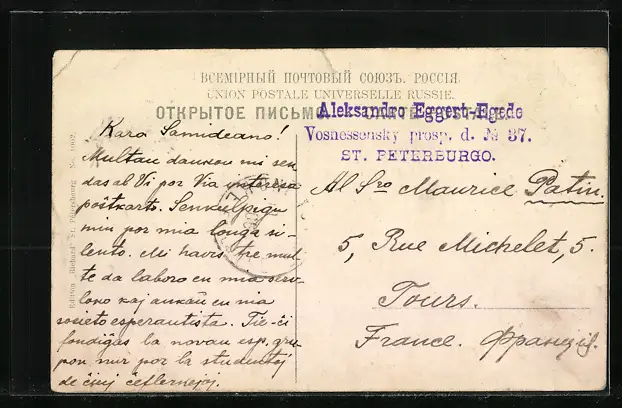 ВСЕМІРНЫЙ ПОЧТОВЫЙ СОЮЗЪ. РОССІЯ
UNION POSTALE UNIVERSELLE RUSSIE.
ОТКРЫТОЕ ПИСЬМО
Aleksandro Eggert-Egede
Vosnessensky prosp. d. № 37.
ST. PETERBURGO.
Kara Samideano!
Multan dankon mi sen
das al Vi por Via interesa
poŝtkarto. Senkulpigu
min por mia longa si-
lento. Mi havis tre mul
te da laboro en mia
kaj ankaŭ en nia
societo esperantista. Tie-ĉi
fondiĝas la novan esp. gru
pon nur por la studentoj
de ĉiuj
Al Sro Maurice Patin.
5, Rue Michelet, 5.
Tours.
France. Францiя.